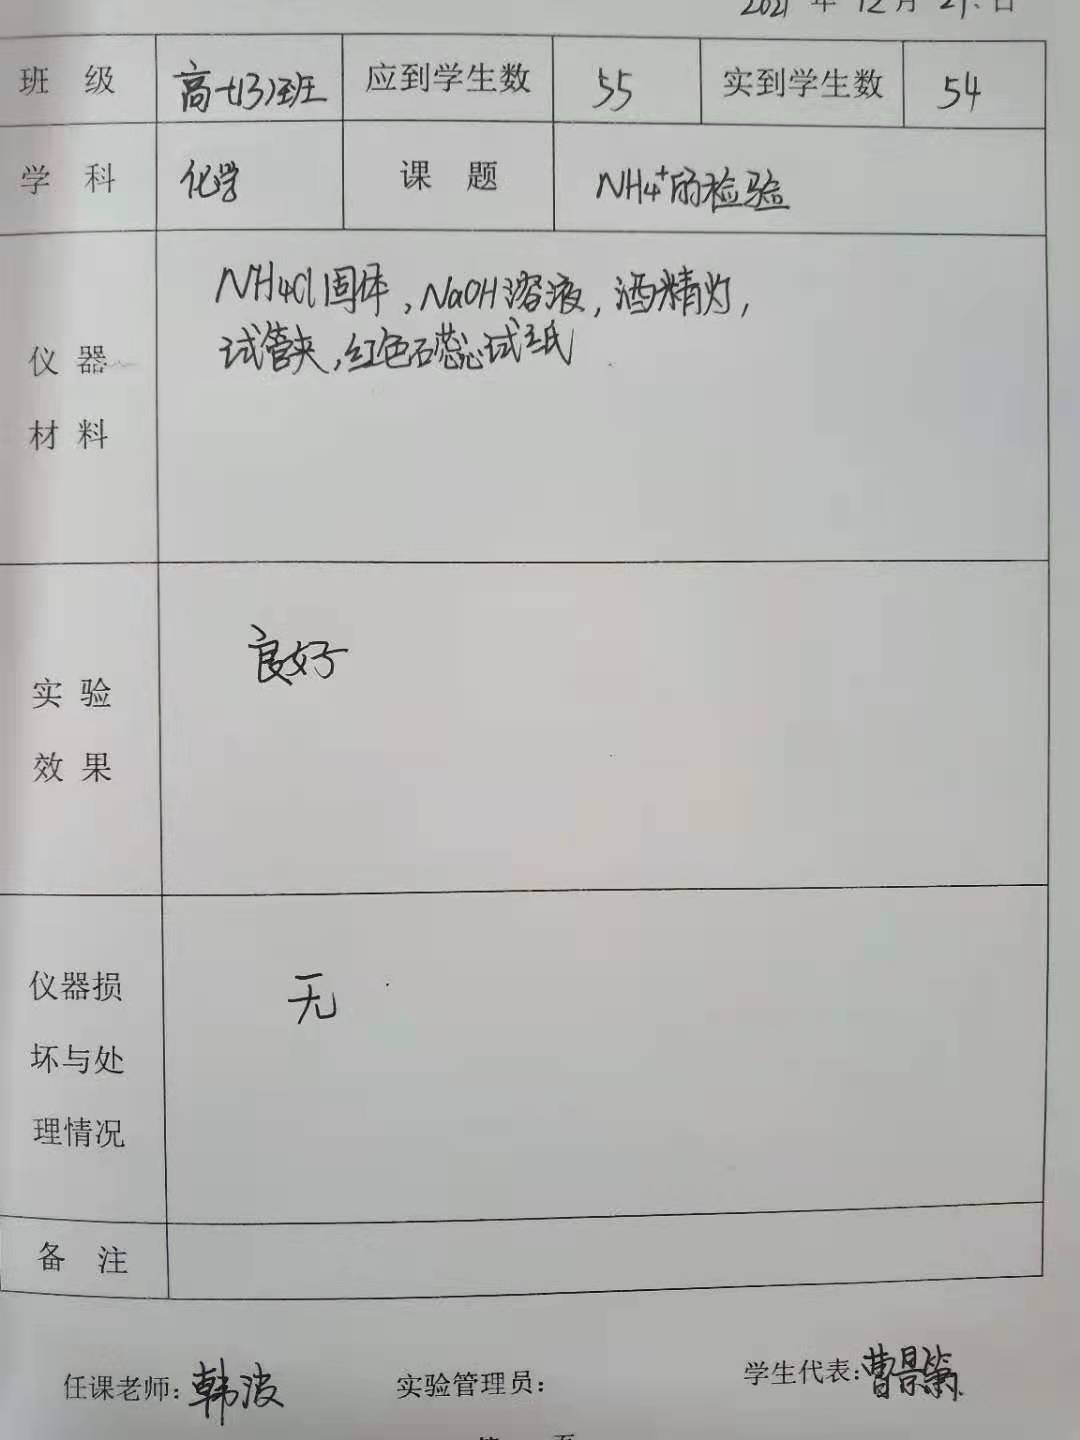 2021 年 12 月 21 日
班 级 高一(3)班 应到学生数 55 实到学生数 54
学 科 化学 课 题 NH4+的检验
仪 器
材 料
NH4Cl固体，NaOH溶液，酒精灯，
试管夹，红色石蕊试纸
实 验
效 果
良好
仪器损
坏与处
理情况
无
备 注
任课老师：韩波 实验管理员： 学生代表：曹景